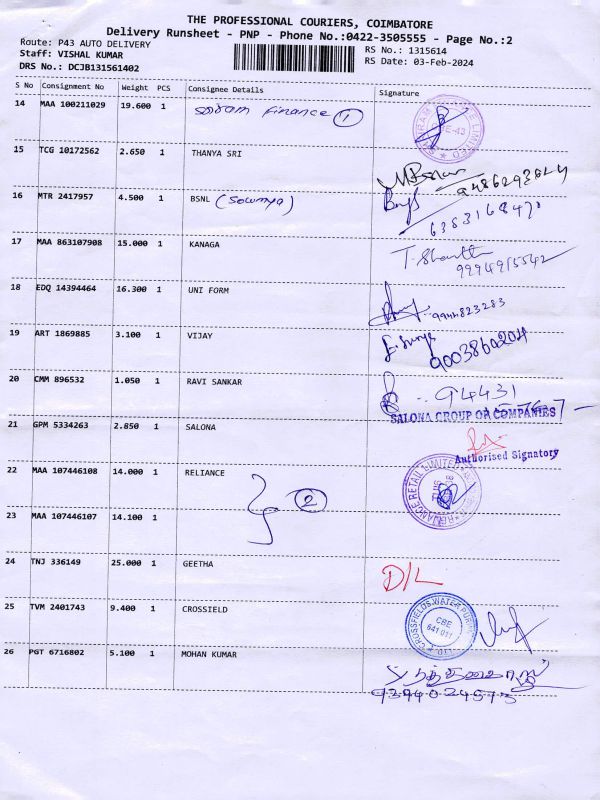 THE PROFESSIONAL COURIERS, COIMBATORE
Delivery Runsheet - PNP - Phone No.:0422-3505555 - Page No.:2
Route: P43 AUTO DELIVERY
Staff: VISHAL KUMAR
DRS No.: DCJB131561402
RS No.: 1315614
RS Date: 03-Feb-2024
S No Consignment No Weight PCS Consignee Details Signature
14 MAA 100211029 19.600 1 Sriram Finance 1
15 TCG 10172562 2.650 1 THANYA SRI
16 MTR 2417957 4.500 1 BSNL (Sowmya)
17 MAA 863107908 15.000 1 KANAGA T. Shanthi
9994915542
18 EDQ 14394464 16.300 1 UNI FORM 9944823283
19 ART 1869885 3.100 1 VIJAY
9003860204
20 CMM 896532 1.050 1 RAVI SANKAR 94431
SALONA GROUP OF COMPANIES
21 GPM 5334263 2.850 1 SALONA
Authorised Signatory
22 MAA 107446108 14.000 1 RELIANCE RELIANCE RETAIL LIMITED
2
23 MAA 107446107 14.100 1
24 TNJ 336149 25.000 1 GEETHA D/L
25 TVM 2401743 9.400 1 CROSSIELD CROSSFIELDS WATER CBE 641 011
26 PGT 6716802 5.100 1 MOHAN KUMAR